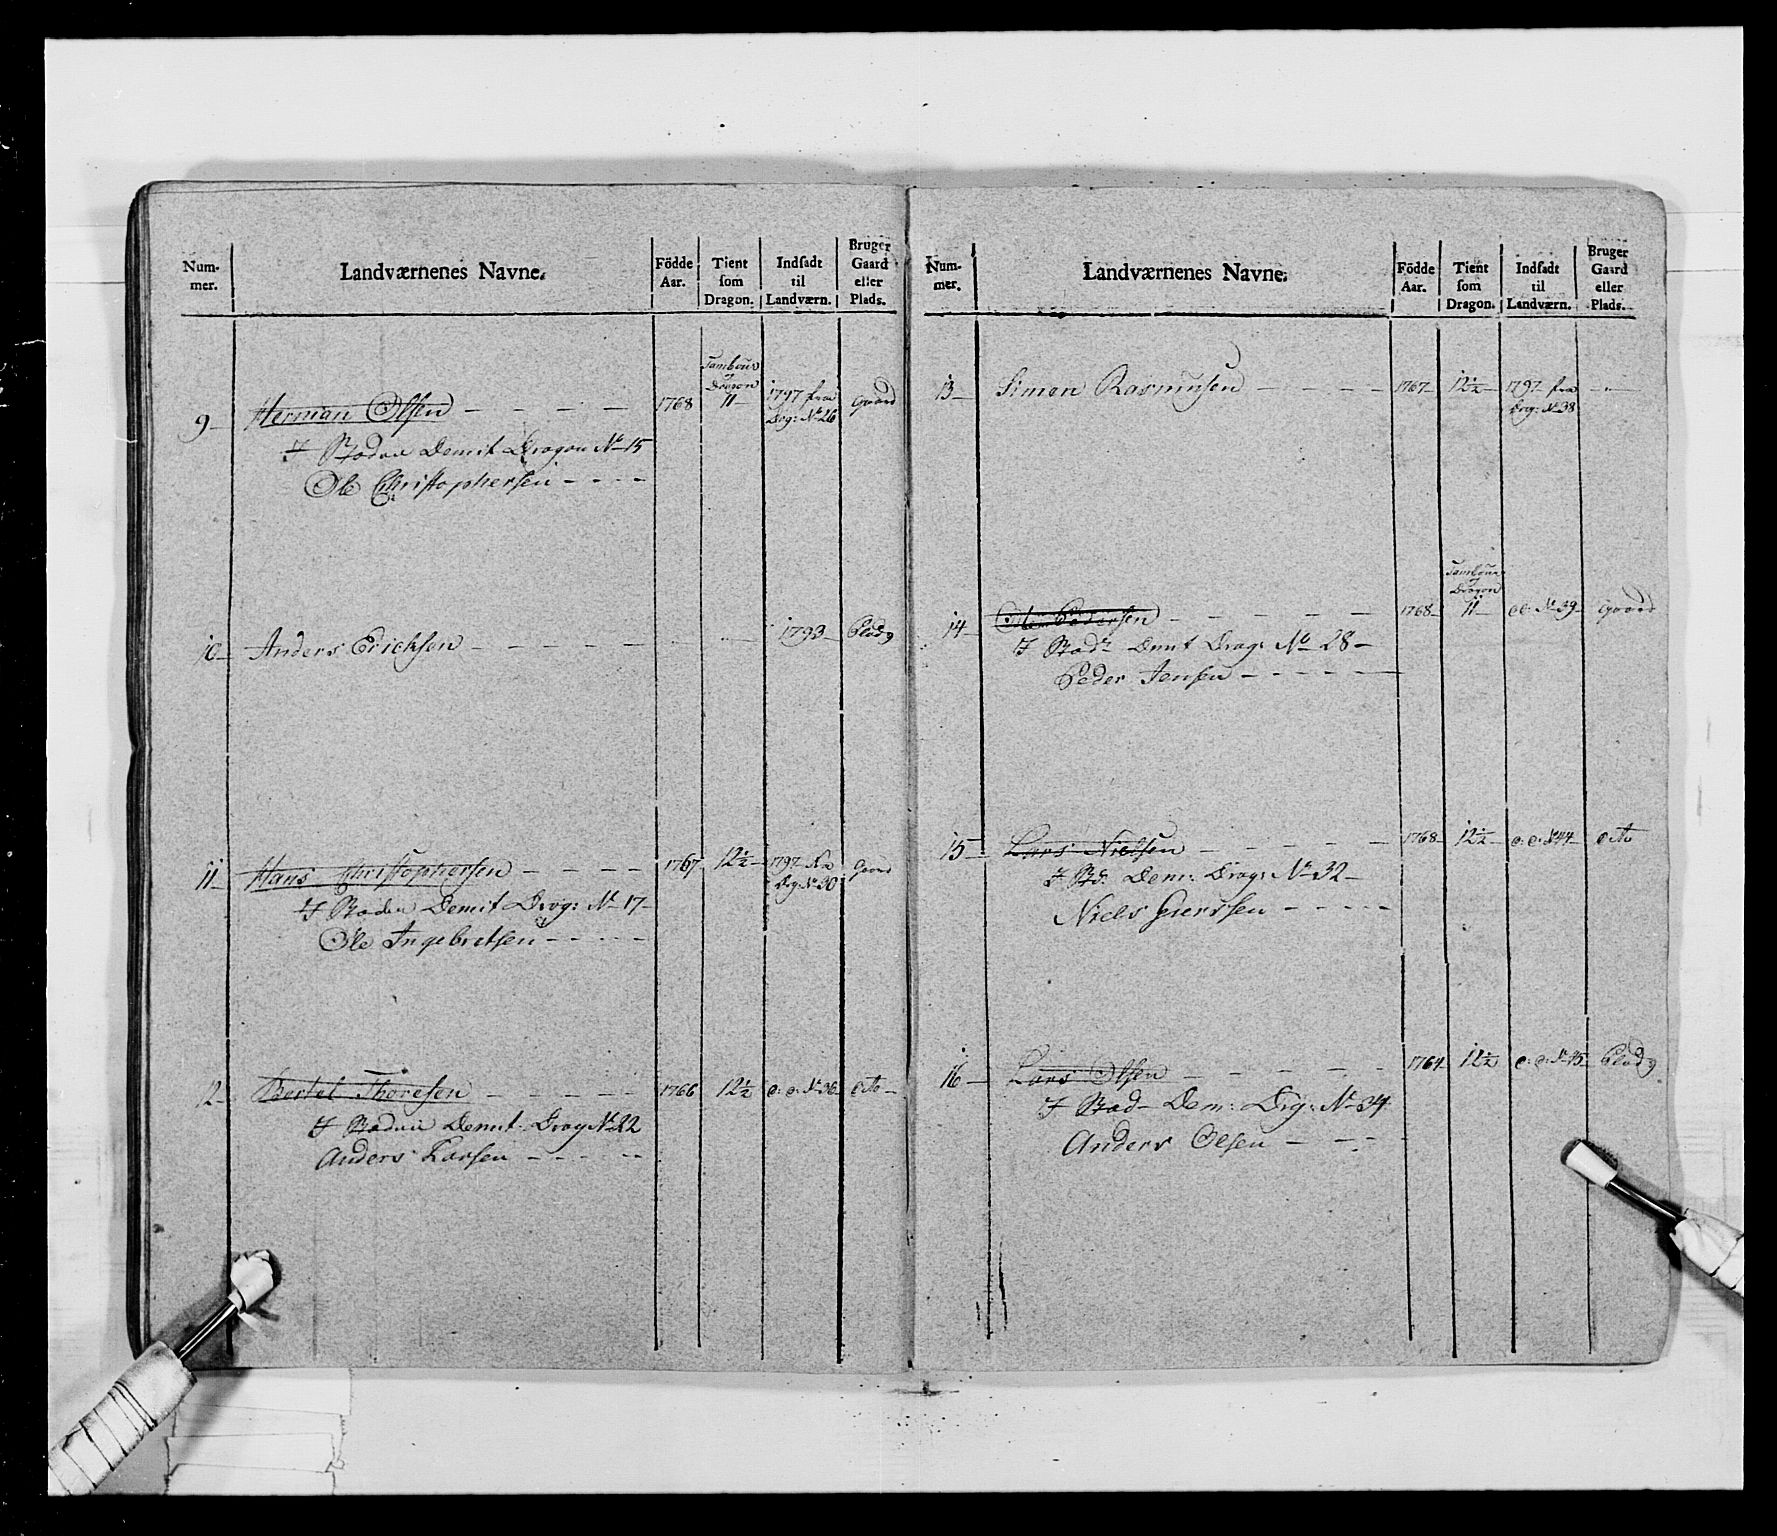 Num-
mer.
Landværnenes Navne.
Födde
Aar.
Tient
som
Dragon.
Indsadt
til
Landværn.
Bruger
Gaard
eller
Plads.
9
Herman Olsen
1768
Tambour
Dragon
11
1797 fra
Drg: No 26
Gaard
I Staden Demit Dragon No 15
Ole Christophersen
10
Anders Ericksen
1793
Plads
11
Hans Christophersen
1767
12½
1797 fra
Drg: No 30
Gaard
I Staden Demit Drag: No 17
Ole Ingebretsen
12
Bertel Thoresen
1766
12½
d: d: No 36
dito
I Staden Demit Drag No 22
Anders Larsen
Num-
mer.
Landværnenes Navne.
Födde
Aar.
Tient
som
Dragon.
Indsadt
til
Landværn.
Bruger
Gaard
eller
Plads.
13
Simen Rasmusen
1767
12½
1797 fra
Drg: No 38
14
Pedersen
1768
Tambour
Dragon
11
d: No 39
Gaard
I Stad: Demit Drag: No 28
Peder Jensen
15
Lars Nielsen
1768
12½
d: d: No 44
dito
I Std: Dem: Drag: No 32
Niels
16
Lars Olsen
1764
12½
d: d: No 45
Plads
I Stad Dem: Drg: No 34
Anders Olsen